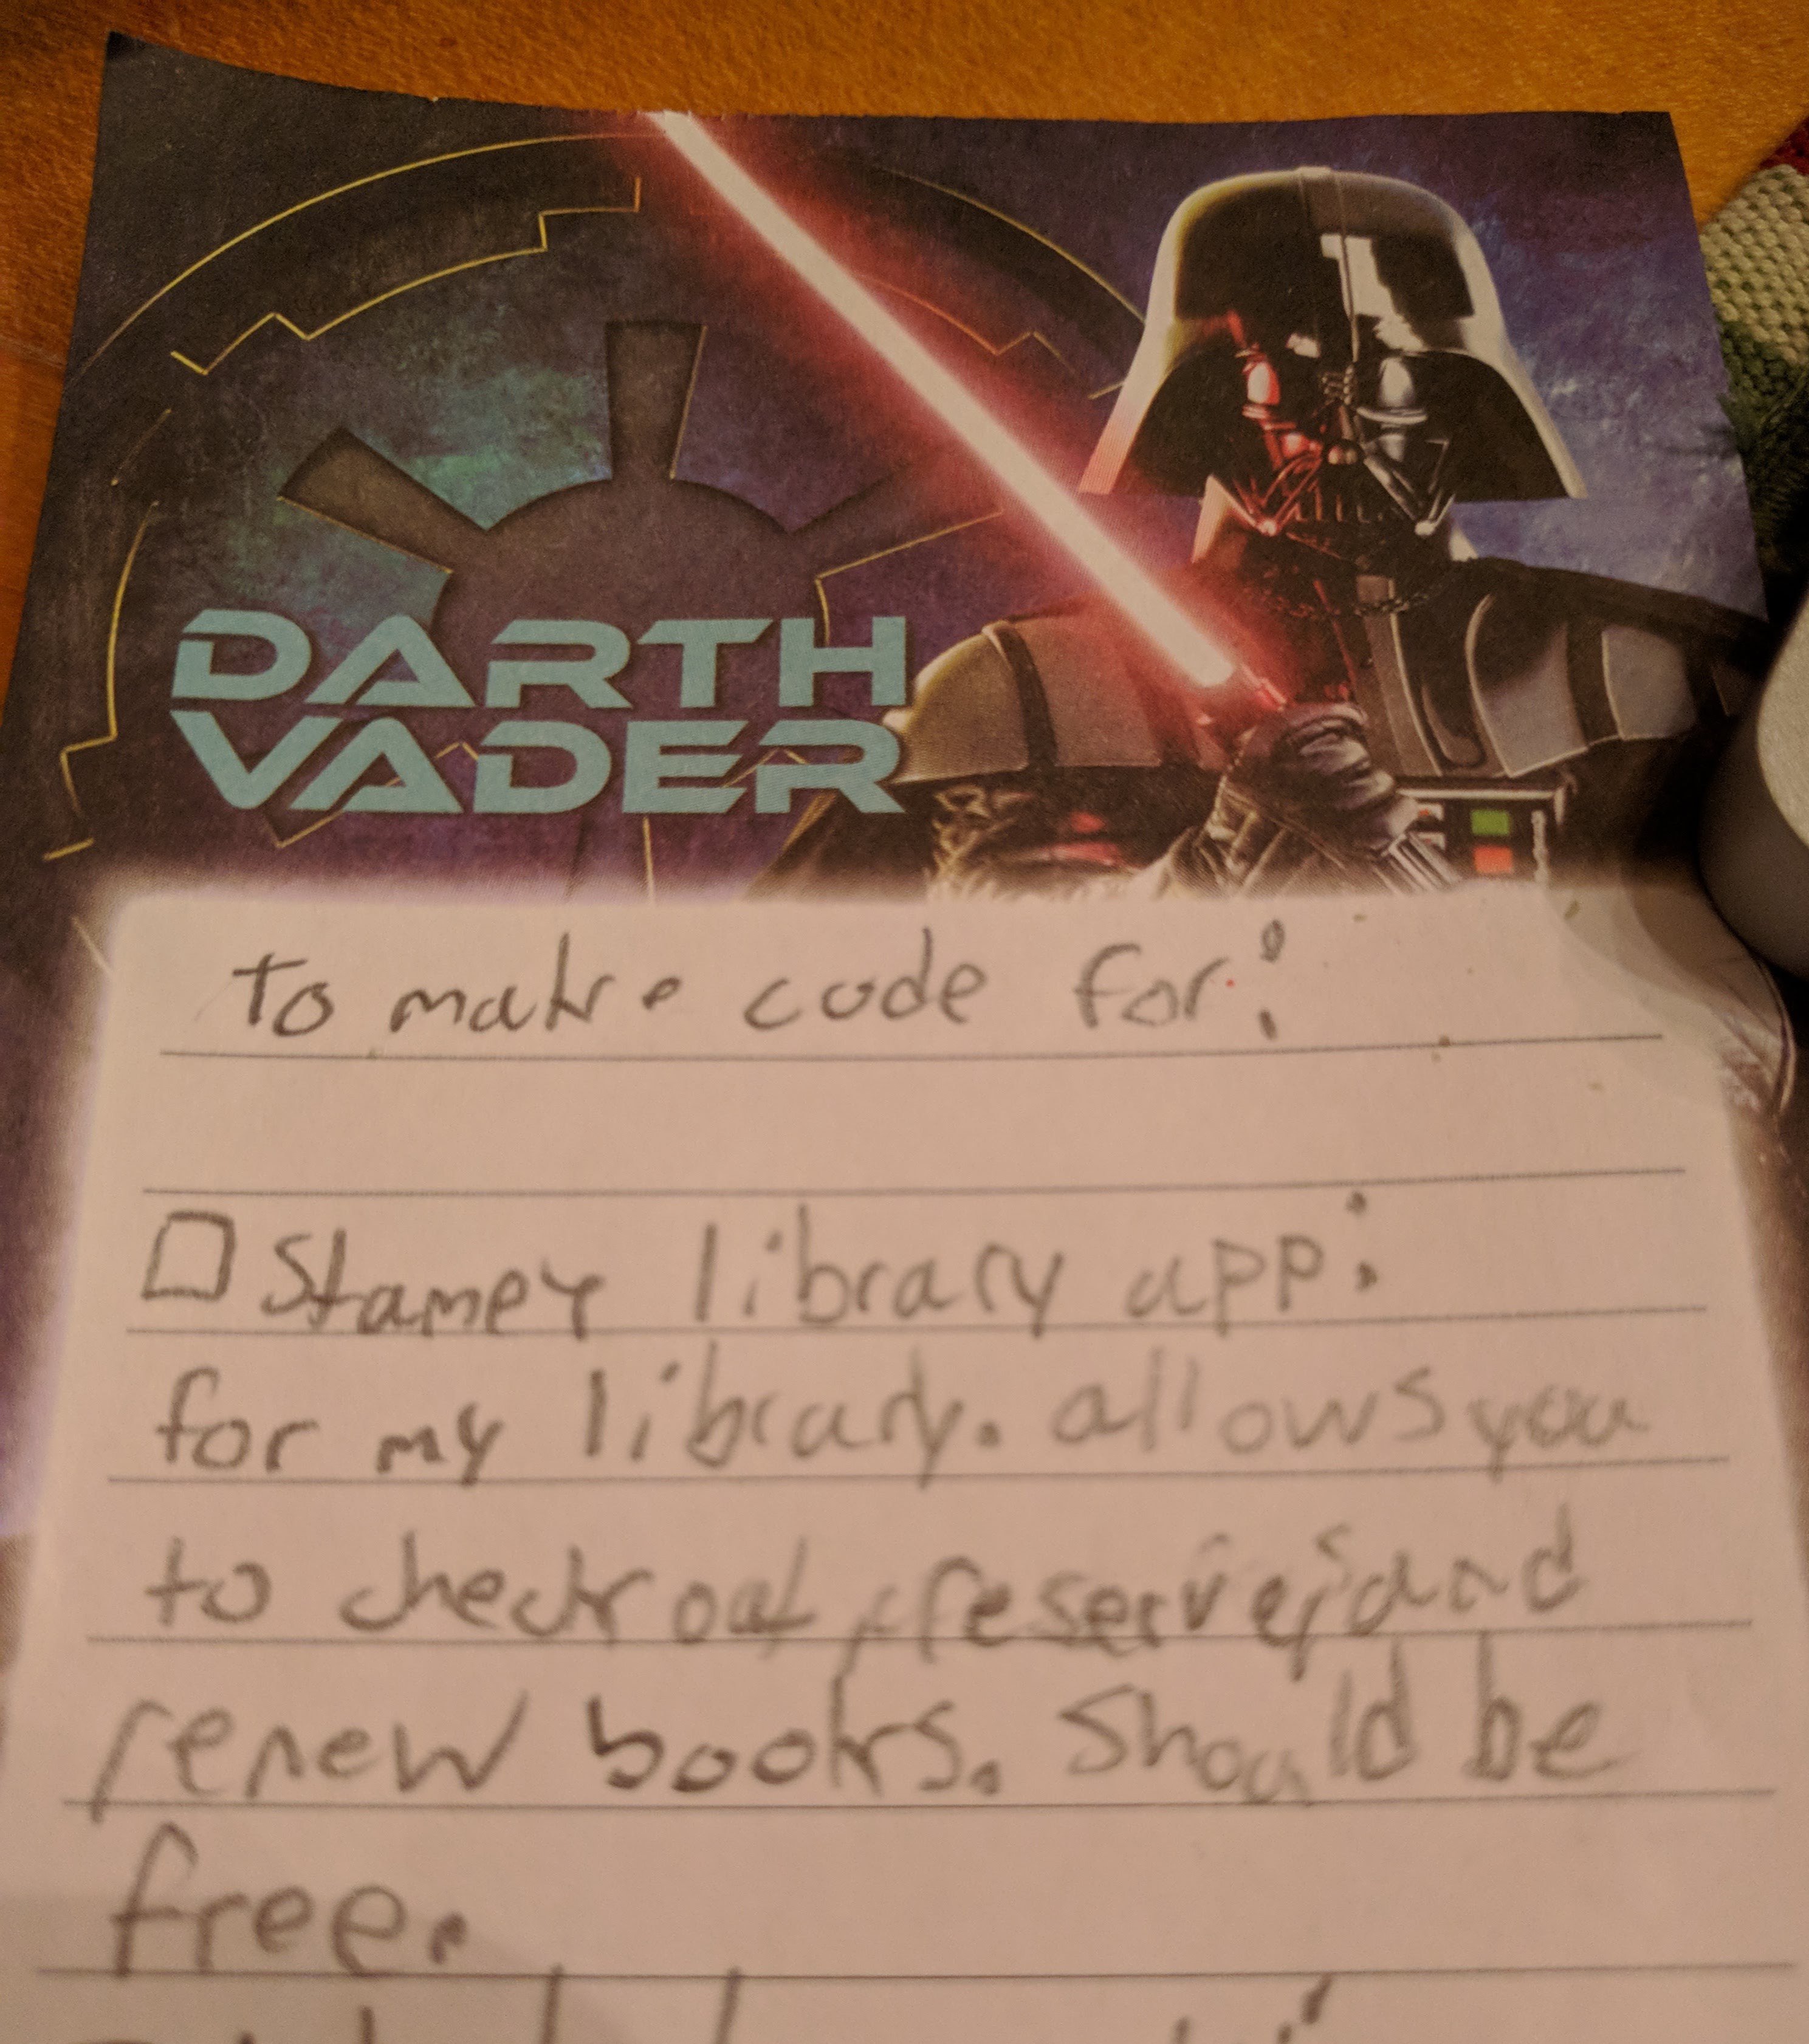 DARTH
VADER
to make code for:
Stamey library app:
for my library. allows you
to check out, reserve, and
renew books. Should be
free.